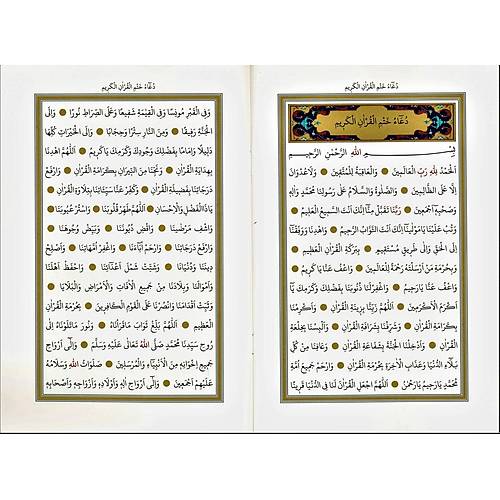 دُعَاءُ خَتْمِ الْقُرْاٰنِ الْكَرِيمِ
دُعَاءُ خَتْمِ الْقُرْاٰنِ الْكَرِيمِ
بِسْمِ اللّٰهِ الرَّحْمٰنِ الرَّحِيمِ
اَلْحَمْدُ لِلّٰهِ رَبِّ الْعَالَمِينَ ● وَالْعَاقِبَةُ لِلْمُتَّقِينَ ● وَلَا عُدْوَانَ
اِلَّا عَلَى الظَّالِمِينَ ● وَالصَّلٰوةُ وَالسَّلَامُ عَلٰى رَسُولِنَا مُحَمَّدٍ وَاٰلِهِ
وَصَحْبِهِ اَجْمَعِينَ ● رَبَّنَا تَقَبَّلْ مِنَّا اِنَّكَ اَنْتَ السَّمِيعُ الْعَلِيمُ ●
وَتُبْ عَلَيْنَا يَا مَوْلٰينَا اِنَّكَ اَنْتَ التَّوَّابُ الرَّحِيمُ ● وَاهْدِنَا وَوَفِّقْنَا
اِلَى الْحَقِّ وَاِلٰى طَرِيقٍ مُسْتَقِيمٍ ● بِبَرَكَةِ الْقُرْاٰنِ الْعَظِيمِ ●
وَبِحُرْمَةِ مَنْ اَرْسَلْتَهُ رَحْمَةً لِلْعَالَمِينَ ● وَاعْفُ عَنَّا يَا كَرِيمُ ●
وَاعْفُ عَنَّا يَا رَحِيمُ ● وَاغْفِرْ لَنَا ذُنُوبَنَا بِفَضْلِكَ وَكَرَمِكَ يَا
اَكْرَمَ الْاَكْرَمِينَ ● اَللّٰهُمَّ زَيِّنَّا بِزِينَةِ الْقُرْاٰنِ ● وَاَكْرِمْنَا
بِكَرَامَةِ الْقُرْاٰنِ ● وَشَرِّفْنَا بِشَرَافَةِ الْقُرْاٰنِ ● وَاَلْبِسْنَا بِخِلْعَةِ
الْقُرْاٰنِ ● وَاَدْخِلْنَا الْجَنَّةَ بِشَفَاعَةِ الْقُرْاٰنِ ● وَعَافِنَا مِنْ كُلِّ
بَلَاءِ الدُّنْيَا وَعَذَابِ الْاٰخِرَةِ بِحُرْمَةِ الْقُرْاٰنِ ● وَارْحَمْ جَمِيعَ اُمَّةِ
مُحَمَّدٍ يَا رَحِيمُ يَا رَحْمٰنُ ● اَللّٰهُمَّ اجْعَلِ الْقُرْاٰنَ لَنَا فِى الدُّنْيَا قَرِينًا
دُعَاءُ خَتْمِ الْقُرْاٰنِ الْكَرِيمِ
وَفِى الْقَبْرِ مُونِسًا وَفِى الْقِيٰمَةِ شَفِيعًا وَعَلَى الصِّرَاطِ نُورًا ● وَاِلَى
الْجَنَّةِ رَفِيقًا ● وَمِنَ النَّارِ سِتْرًا وَحِجَابًا ● وَاِلَى الْخَيْرَاتِ كُلِّهَا
دَلِيلًا وَاِمَامًا بِفَضْلِكَ وَجُودِكَ وَكَرَمِكَ يَا كَرِيمُ ● اَللّٰهُمَّ اهْدِنَا
بِهِدَايَةِ الْقُرْاٰنِ ● وَنَجِّنَا مِنَ النِّيرَانِ بِكَرَامَةِ الْقُرْاٰنِ ● وَارْفَعْ
دَرَجَاتِنَا بِفَضِيلَةِ الْقُرْاٰنِ ● وَكَفِّرْ عَنَّا سَيِّئَاتِنَا بِتِلَاوَةِ الْقُرْاٰنِ
يَا ذَا الْفَضْلِ وَالْاِحْسَانِ ● اَللّٰهُمَّ طَهِّرْ قُلُوبَنَا ● وَاسْتُرْ عُيُوبَنَا ●
وَاشْفِ مَرْضٰينَا ● وَاقْضِ دُيُونَنَا ● وَبَيِّضْ وُجُوهَنَا ●
وَارْفَعْ دَرَجَاتِنَا ● وَارْحَمْ اٰبَاءَنَا ● وَاغْفِرْ اُمَّهَاتِنَا ● وَاَصْلِحْ
دِينَنَا وَدُنْيَانَا ● وَشَتِّتْ شَمْلَ اَعْدَائِنَا ● وَاحْفَظْ اَهْلَنَا
وَاَمْوَالَنَا وَبِلَادَنَا مِنْ جَمِيعِ الْاٰفَاتِ وَالْاَمْرَاضِ وَالْبَلَايَا ●
وَثَبِّتْ اَقْدَامَنَا وَانْصُرْنَا عَلَى الْقَوْمِ الْكَافِرِينَ ● بِحُرْمَةِ الْقُرْاٰنِ
الْعَظِيمِ ● اَللّٰهُمَّ بَلِّغْ ثَوَابَ مَا قَرَأْنَاهُ ● وَنُورَ مَا تَلَوْنَاهُ اِلٰى
رُوحِ سَيِّدِنَا مُحَمَّدٍ صَلَّى اللّٰهُ تَعَالٰى عَلَيْهِ وَسَلَّمَ ● وَاِلٰى اَرْوَاحِ
جَمِيعِ اِخْوَانِهِ مِنَ الْاَنْبِيَاءِ وَالْمُرْسَلِينَ ● صَلَوَاتُ اللّٰهِ وَسَلَامُهُ
عَلَيْهِمْ اَجْمَعِينَ ● وَاِلٰى اَرْوَاحِ اٰلِهِ وَاَوْلَادِهِ وَاَزْوَاجِهِ وَاَصْحَابِهِ